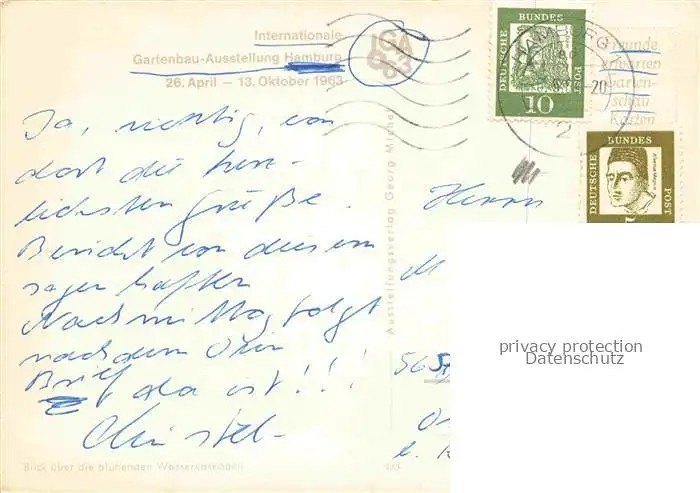 Internationale
Gartenbau-Ausstellung Hamburg
26. April – 13. Oktober 1963
IGA 63
DEUTSCHE BUNDES POST
10
HAMBURG
20
2
Freunde
schau
Karten
DEUTSCHE BUNDES POST
Ja, richtig, von
dort die herz-
lichsten Grüße.
Bericht von diesem
sagenhaften
Nachmittag folgt
nachdem Dein
Brief da ist!!!
Christel-
Herrn
M
565
Ausstellungsverlag Georg
Blick über die blühenden Wasserkaskaden
privacy protection
Datenschutz